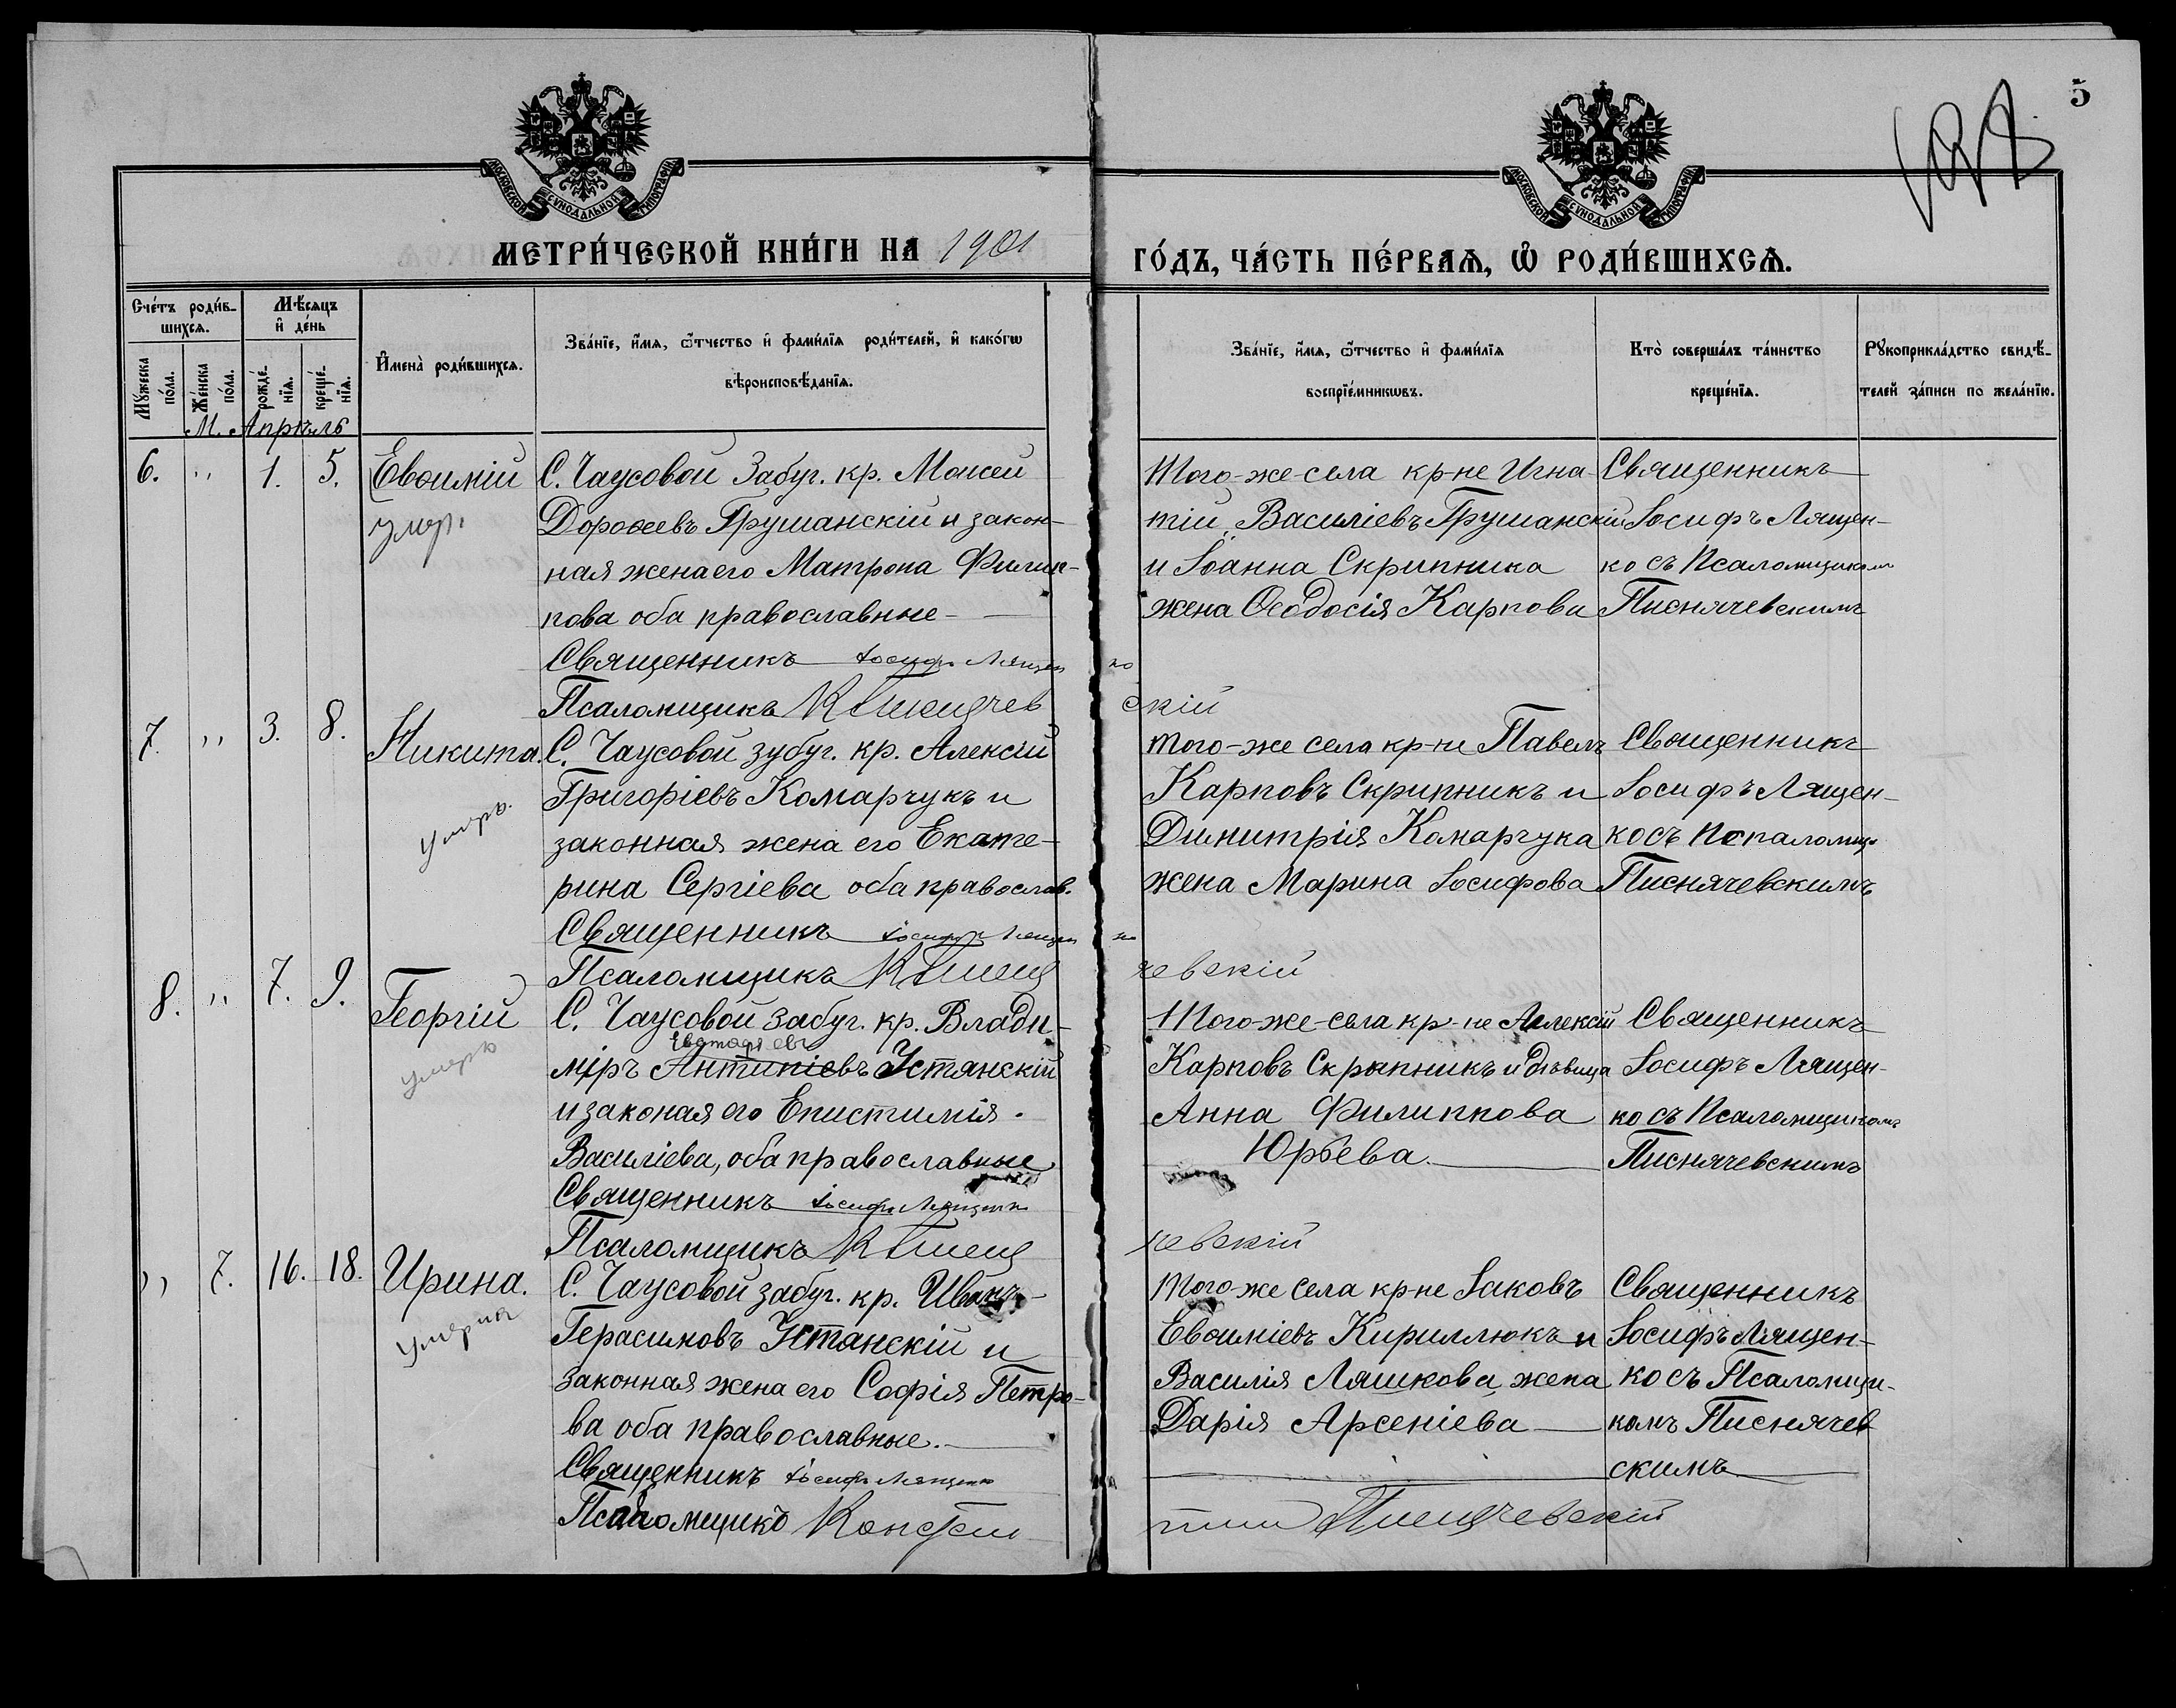 5
МОСКОВСКОЙ СѴНОДАЛЬНОЙ ТИПОГРАФІИ
МОСКОВСКОЙ СѴНОДАЛЬНОЙ ТИПОГРАФІИ
МЕТРИ́ЧЕСКОЙ КНИ́ГИ НА 1901
ГО́ДЪ, ЧА́СТЬ ПЕ́РВАѦ, Ѡ РОДИ́ВШИХСѦ.
Сче́тъ роди́в-
шихсѧ.
Мꙋ́жеска по́ла.
Же́нска по́ла.
Мѣ́сѧцъ
и҆ де́нь
рожде́-нїѧ.
креще́-нїѧ.
И҆мена̀ роди́вшихсѧ.
Зва́нїе, и҆́мѧ, ѻ҆́тчество и҆ фами́лїѧ роди́телей, и҆ како́гѡ
вѣроисповѣ́данїѧ.
Зва́нїе, и҆́мѧ, ѻ҆́тчество и҆ фами́лїѧ
воспрїе́мникѡвъ.
Кто̀ соверша́лъ та́инство
креще́нїѧ.
Рꙋкоприкла́дство свидѣ́-
телей за́писи по жела́нїю.
М. Апрѣль
6. " 1. 5.
Евѳимій
умеръ
С. Чаусовой Забуг. кр. Моисей
Дороѳеевъ Грушанскій и закон-
ная жена его Матрона Филип-
пова оба православные
Того-же-села кр-не Игна-
тій Василіевъ Грушанскій
и Іоанна Скрипника
жена Ѳеодосія Карпова
Священникъ
Іосифъ Лящен-
ко съ Псаломщикомъ
Писнячевскимъ
Священникъ Іосифъ Лященко
Псаломщикъ К Писнячевскій
7. " 3. 8.
Никита.
умеръ.
С. Чаусовой зубуг. кр. Алексій
Григоріевъ Комарчукъ и
законная жена его Екате-
рина Сергіева оба православ.
того-же села кр-не Павелъ
Карповъ Скрипникъ и
Димитрія Комарчука
жена Марина Іосифова
Священникъ
Іосифъ Лящен-
ко съ
Писнячевскимъ
Священникъ Іосифъ Лященко
Псаломщикъ К Писнячевскій
8. " 7. 9.
Георгій
умеръ
С. Чаусовой забуг. кр. Влади-
міръ Антипіевъ Устянскій
и законая его Епистимія
Василіева, оба православные
Того-же-села кр-не Алексій
Карповъ Скрыпникъ и дѣвица
Анна Филиппова
Юрьева.
Священникъ
Іосифъ Лящен-
ко съ Псаломщикомъ
Писнячевскимъ
Священникъ Іосифъ Лященко
Псаломщикъ К Писнячевскій
" 7. 16. 18.
Ирина.
умерла
С. Чаусовой забуг. кр. Иванъ
Герасимовъ Устянскій и
законная жена его Софія Петро-
ва оба православные.
Того-же села кр-не Іаковъ
Евѳиміевъ Кириллюкъ и
Василія Ляшкова жена
Дарія Арсеніева
Священникъ
Іосифъ Лящен-
ко съ Псаломщи-
комъ Писнячев
скимъ
Священникъ Іосифъ Лященко
Псаломщикъ Константин Писнячевскій